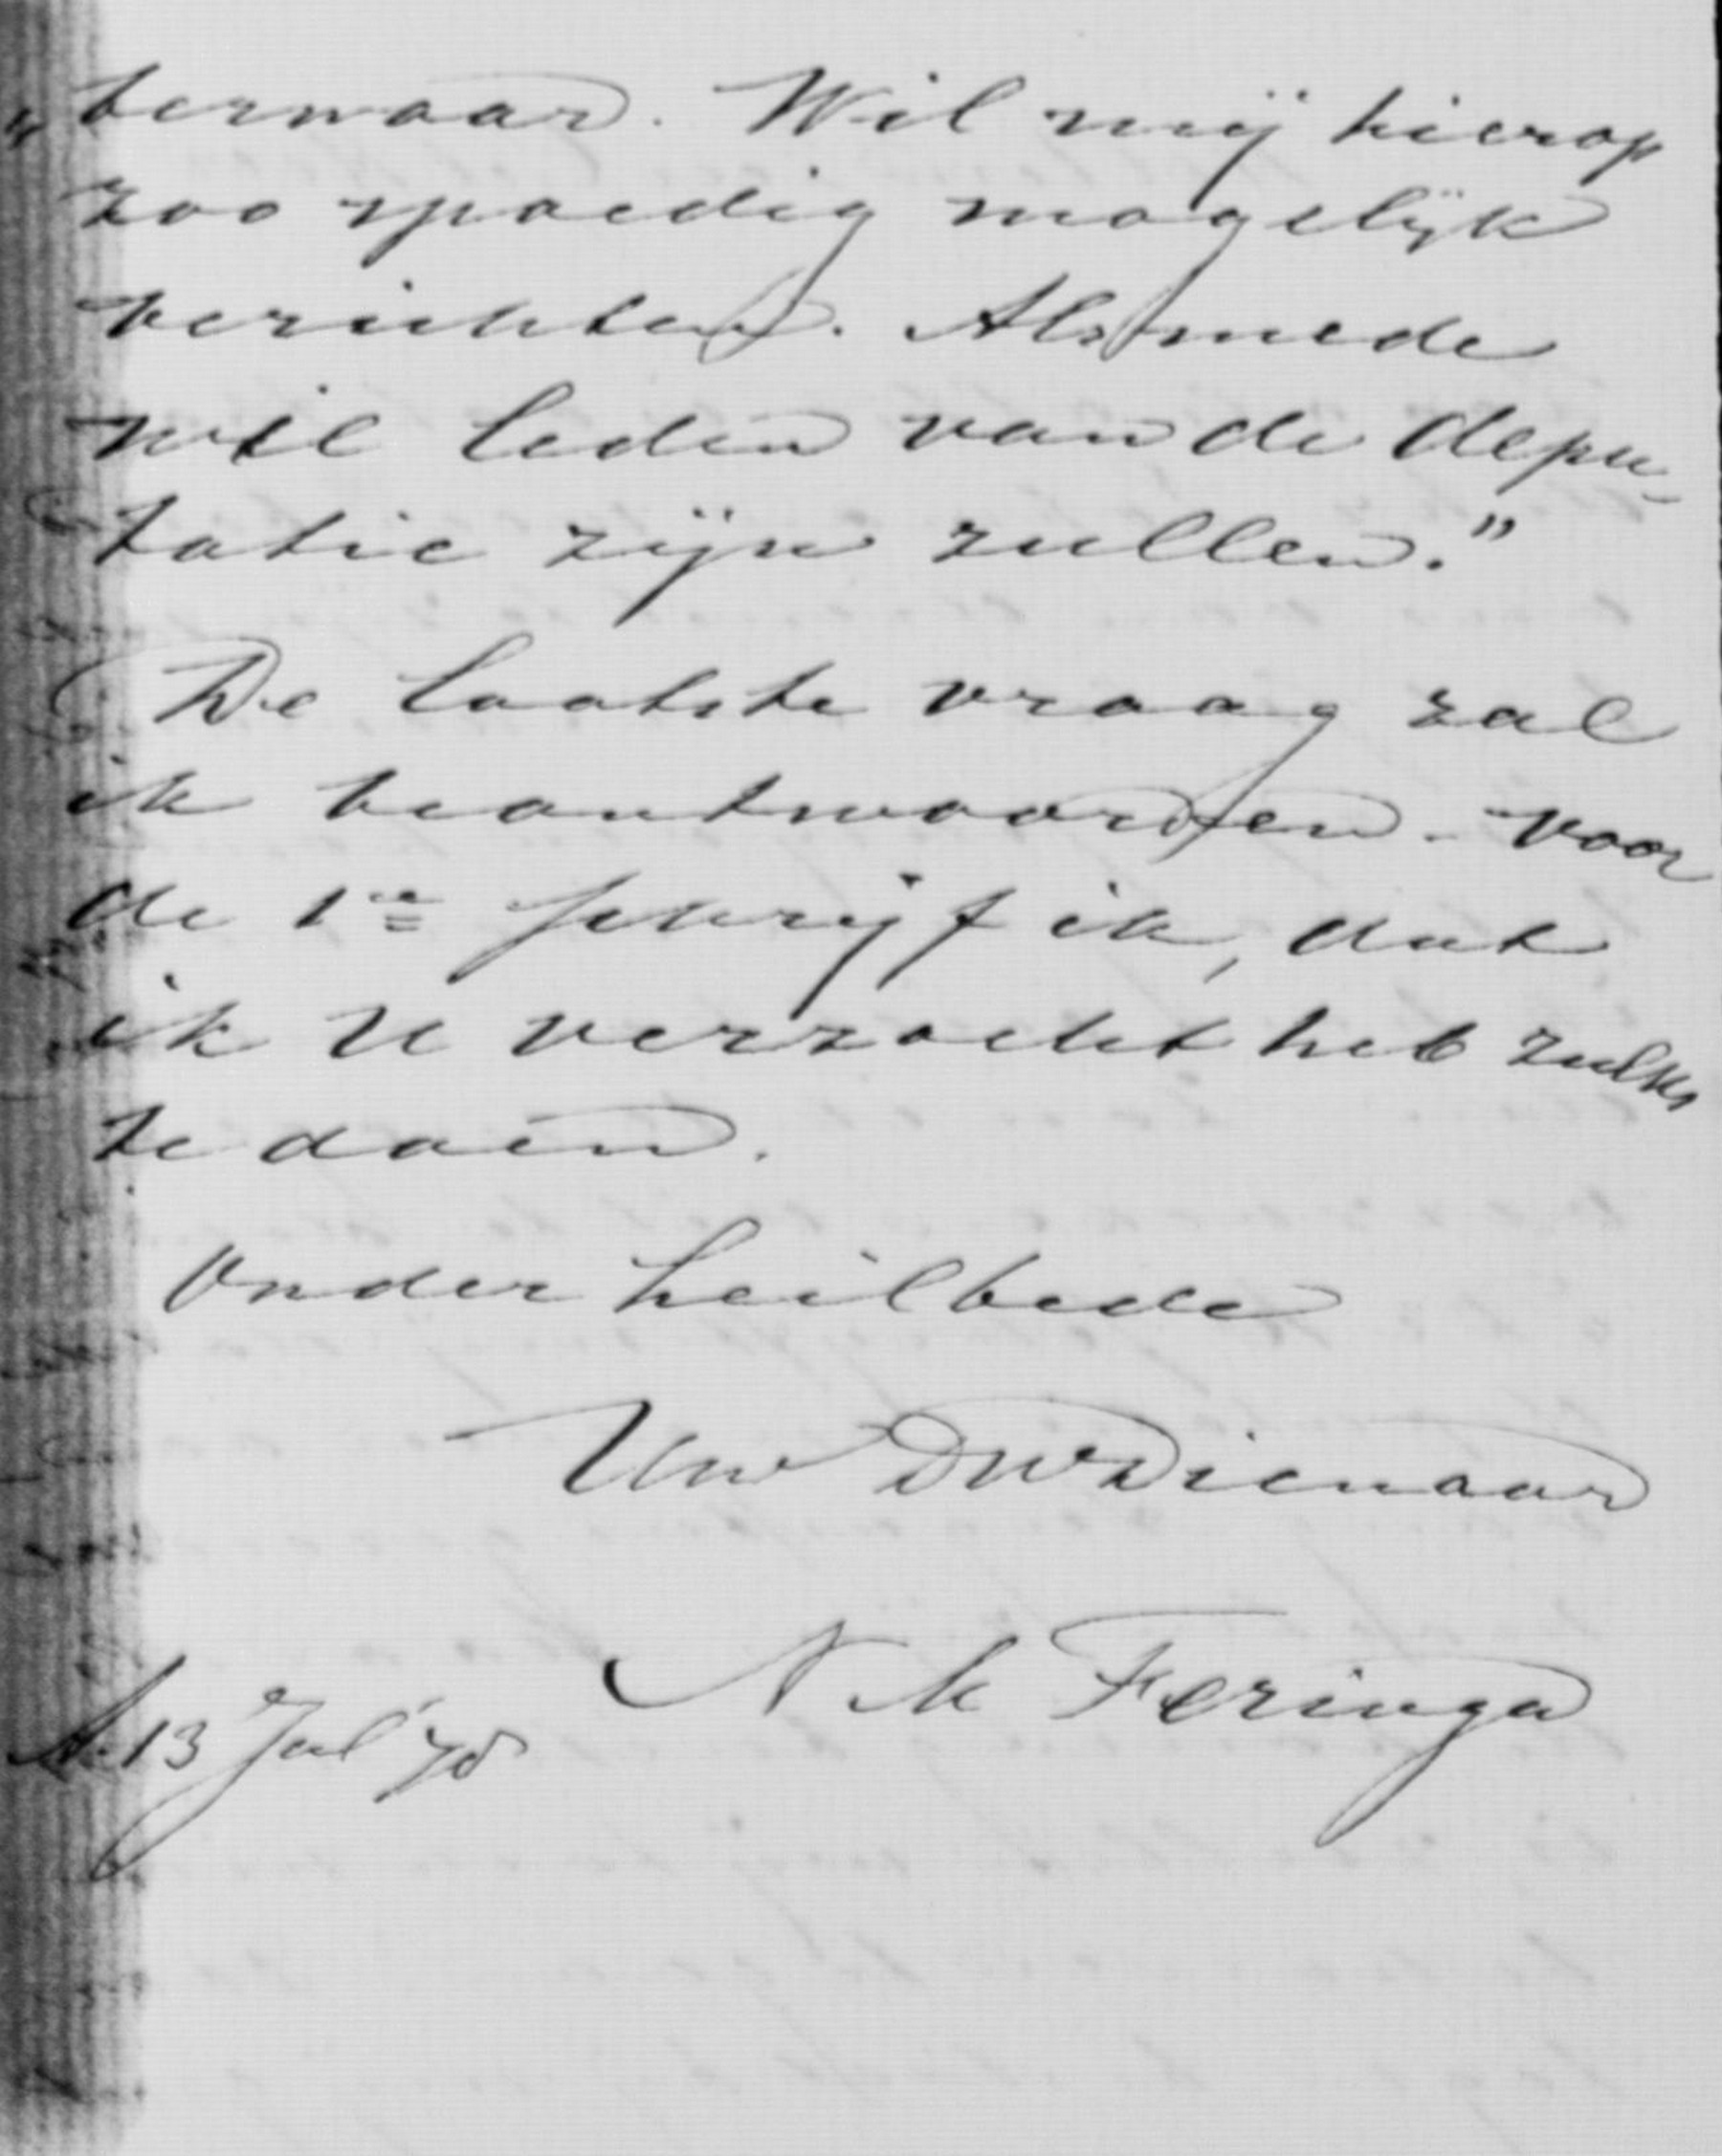 „bezwaar. Wil mij hierop
zoo spoedig mogelijk
berichten. Alsmede
wie leden van de depu-
tatie zijn zullen."
De laatste vraag zal
ik beantwoorden. Voor
de 1e schrijf ik, dat
ik U verzocht heb zulks
te doen.
Onder heilbede
Uw DWDienaar
N M Feringa
A. 13 Jul '78